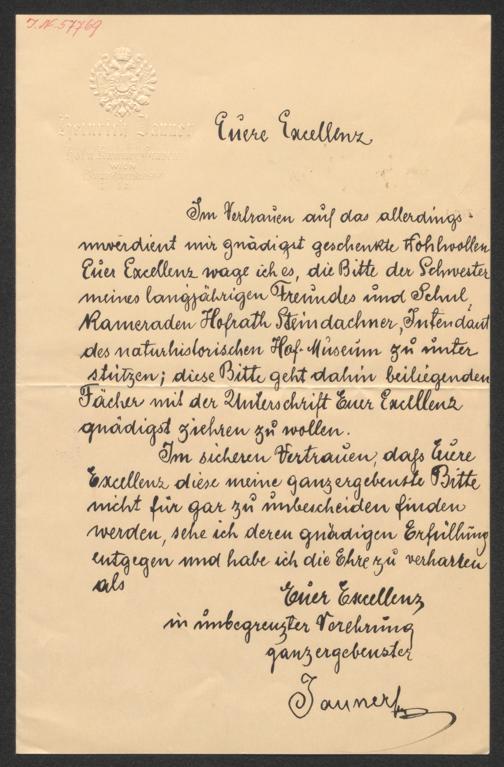 I.N. 57769
Heinrich Jauner
WIEN
Euere Excellenz
Im Vertrauen auf das allerdings
unverdient mir gnädigst geschenkte Wohlwollen
Euer Excellenz wage ich es, die Bitte der Schwester
meines langjährigen Freundes und Schul,
Kameraden Hofrath Steindachner, Intendant
des naturhistorischen Hof-Museum zu unter
stützen; diese Bitte geht dahin beiliegenden
Fächer mit der Unterschrift Euer Excellenz
gnädigst ziehren zu wollen.
Im sicheren Vertrauen, daß Euere
Excellenz diese meine ganzergebenste Bitte
nicht für gar zu unbescheiden finden
werden, sehe ich deren gnädigen Erfüllung
entgegen und habe ich die Ehre zu verharren
als
Euer Excellenz
in unbegrenzter Verehrung
ganzergebenster
Jauner